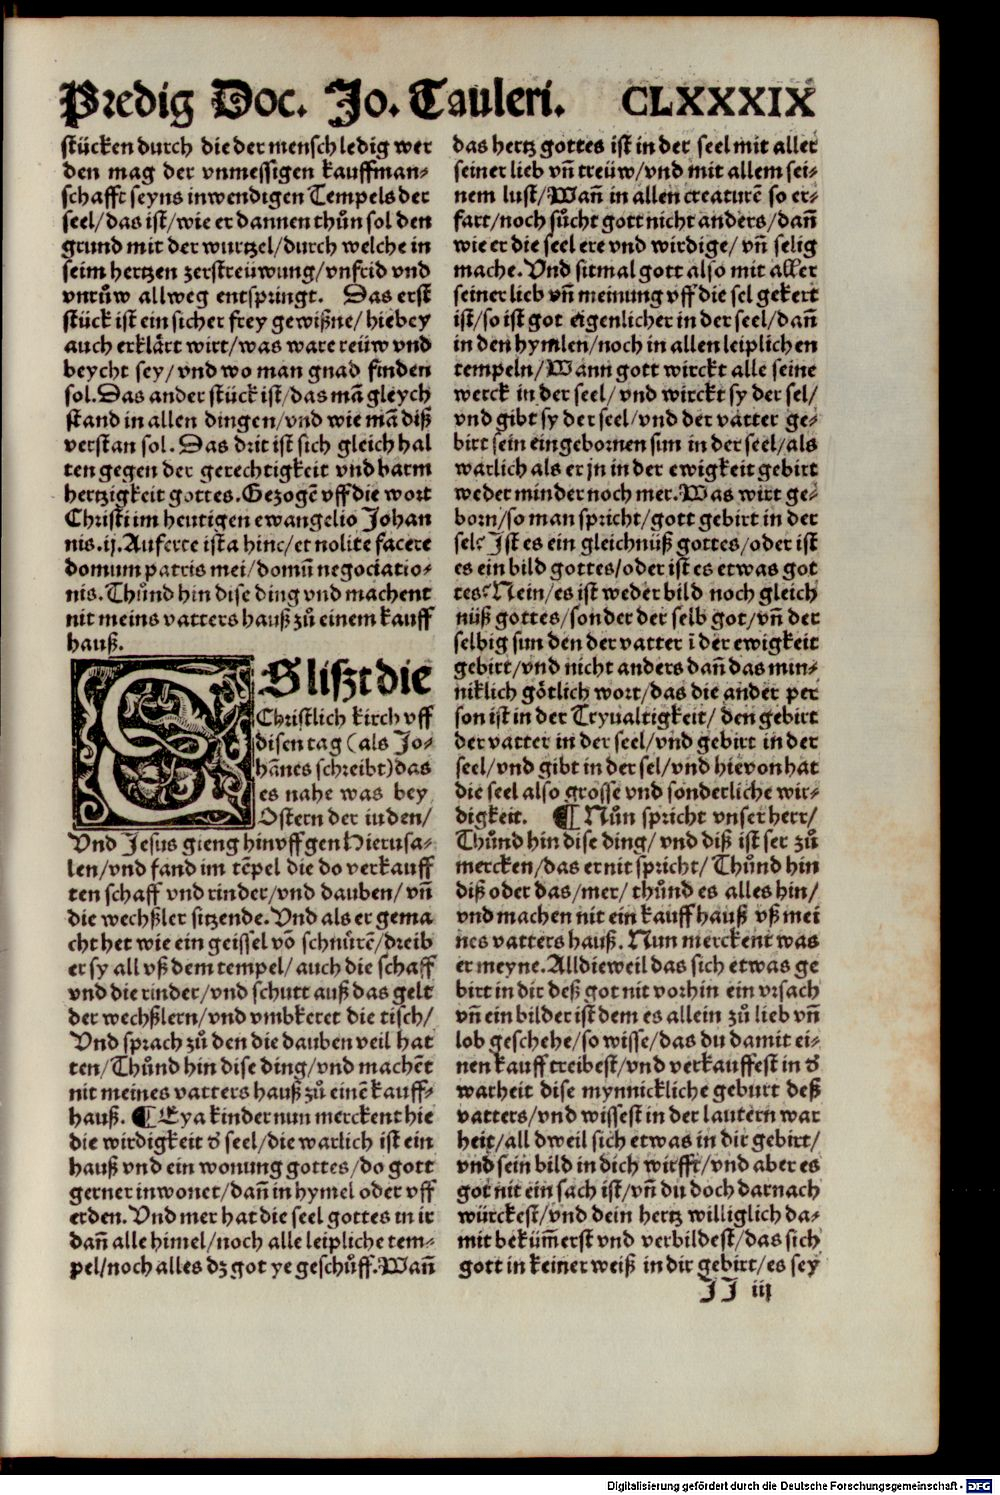 Predig Doc. Jo. Tauleri. CLXXXIX
stücken durch die der mensch ledig wer
den mag der vnmessigen kauffman-
schafft seyns inwendigen Tempels der
seel/das ist/wie er dannen thůn sol den
grund mit der wurtzel/durch welche in
seim hertzen zerstreüwung/vnfrid vnd
vnrůw allweg entspringt. Das erst
stück ist ein sicher frey gewißne/hiebey
auch erklärt wirt/was ware reüw vnd
beycht sey/vnd wo man gnad finden
sol. Das ander stück ist/das mā gleych
stand in allen dingen/vnd wie mā diß
verstan sol. Das drit ist sich gleich hal
ten gegen der gerechtigkeit vnd barm
hertzigkeit gottes. Gezogē vff die wort
Christi im heutigen ewangelio Johan
nis.ij. Auferte ista hinc/et nolite facere
domum patris mei/domū negociatio-
nis. Thůnd hin dise ding vnd machent
nit meins vatters hauß zů einem kauff
hauß.
ES lißzt die
Christlich kirch vff
disen tag (als Jo-
hānes schreibt) das
es nahe was bey
Ostern der iuden/
Vnd Jesus gieng hinvff gen Hierusa-
len/vnd fand im tēpel die do verkauff
ten schaff vnd rinder/vnd dauben/vñ
die wechßler sitzende. Vnd als er gema
cht het wie ein geissel vō schnůrē/dreib
er sy all vß dem tempel/auch die schaff
vnd die rinder/vnd schutt auß das gelt
der wechßlern/vnd vmbkeret die tisch/
Vnd sprach zů den die dauben veil hat
ten/Thůnd hin dise ding/vnd machēt
nit meines vatters hauß zů einē kauff-
hauß. ¶ Eya kinder nun merckent hie
die wirdigkeit d' seel/die warlich ist ein
hauß vnd ein wonung gottes/do gott
gerner inwonet/dañ in hymel oder vff
erden. Vnd mer hat die seel gottes in ir
dañ alle himel/noch alle leipliche tem-
pel/noch alles dz got ye geschůff. Wañ
das hertz gottes ist in der seel mit aller
seiner lieb vñ treüw/vnd mit allem sei-
nem lust/Wañ in allen creaturē so er-
fart/noch sůcht gott nicht anders/dañ
wie er die seel ere vnd wirdige/vñ selig
mache. Vnd sitmal gott also mit aller
seiner lieb vñ meinung vff die sel gekert
ist/so ist got eigenlicher in der seel/dañ
in den hymlen/noch in allen leiplichen
tempeln/Wann gott wirckt alle seine
werck in der seel/vnd wirckt sy der sel/
vnd gibt sy der seel/vnd der vatter ge-
birt sein eingebornen sun in der seel/als
warlich als er jn in der ewigkeit gebirt
weder minder noch mer. Was wirt ge-
born/so man spricht/gott gebirt in der
sel? Ist es ein gleichnüß gottes/oder ist
es ein bild gottes/oder ist es etwas got
tes? Nein/es ist weder bild noch gleich
nüß gottes/sonder der selb got/vñ der
selbig sun den der vatter ī der ewigkeit
gebirt/vnd nicht anders dañ das min-
niklich götlich wort/das die ander per
son ist in der Tryualtigkeit/den gebirt
der vatter in der seel/vnd gebirt in der
seel/vnd gibt in der sel/vnd hievon hat
die seel also grosse vnd sonderliche wir-
digkeit. ¶ Nůn spricht vnser herr/
Thůnd hin dise ding/vnd diß ist ser zů
mercken/das er nit spricht/Thůnd hin
diß oder das/mer/thůnd es alles hin/
vnd machen nit ein kauff hauß vß mei
nes vatters hauß. Nun merckent was
er meyne. Alldieweil das sich etwas ge
birt in dir deß got nit vorhin ein vrsach
vñ ein bilder ist dem es allein zů lieb vñ
lob geschehe/so wisse/das du damit ei-
nen kauff treibest/vnd verkauffest in d'
warheit dise mynnickliche geburt deß
vatters/vnd wissest in der lautern war
heit/all dweil sich etwas in dir gebirt/
vnd sein bild in dich wirfft/vnd aber es
got nit ein sach ist/vñ du doch darnach
würckest/vnd dein hertz williglich da-
mit bekümerst vnd verbildest/das sich
gott in keiner weiß in dir gebirt/es sey
JJ iij
Digitalisierung gefördert durch die Deutsche Forschungsgemeinschaft - DFG